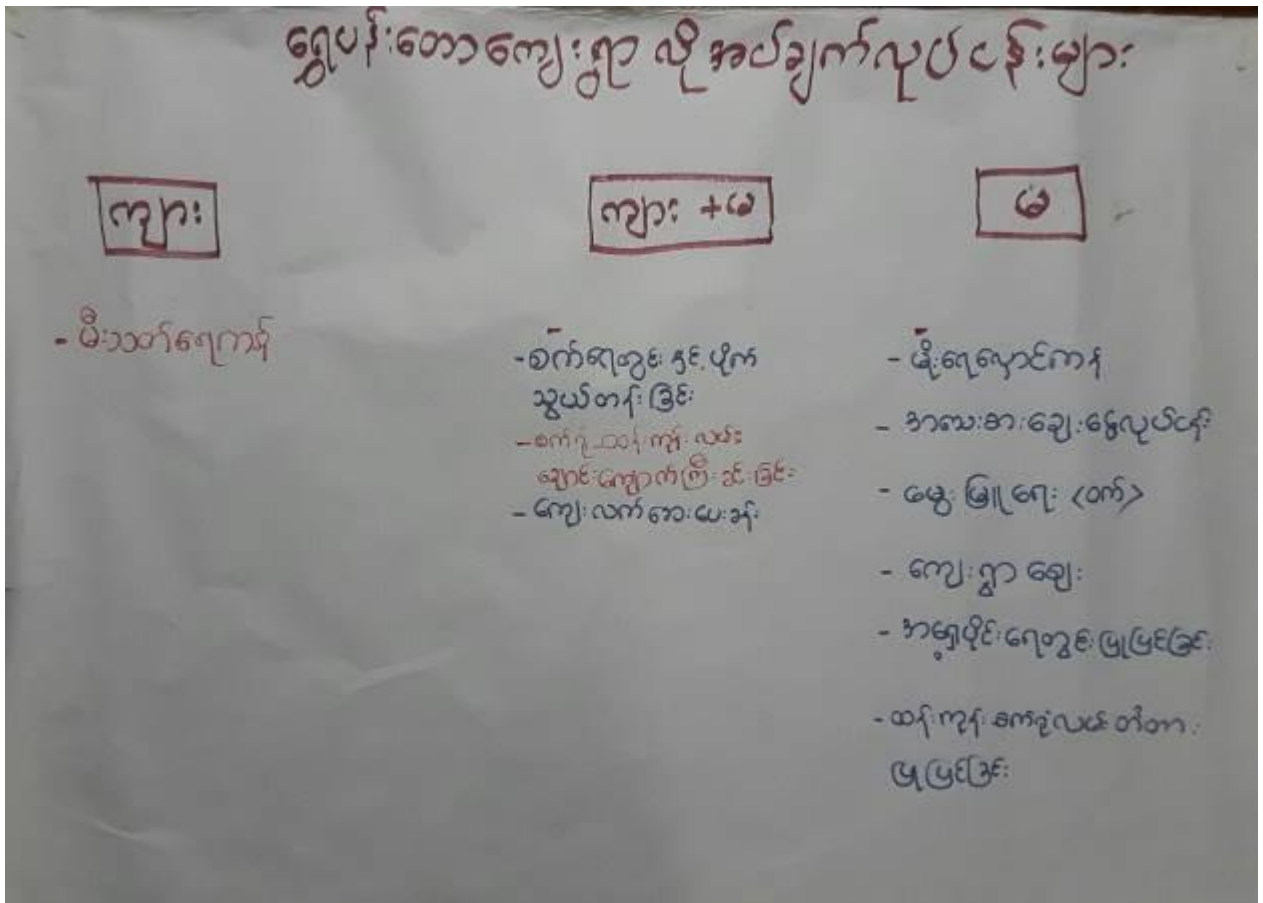 ရွှေပန်းတောကျေးရွာ လိုအပ်ချက်လုပ်ငန်းများ
ကျား
- မီးသတ်ရေကန်
ကျား + မ
- စက်ရေတွင်း နှင့် ပိုက်
သွယ်တန်းခြင်း
- စက်ရုံ ထန်းကုန်း လမ်း
ချောင်းကျောက်ကြီးခင်းခြင်း
- ကျေးလက်ဆေးပေးခန်း
မ
- မိုးရေလှောင်ကန်
- အသေးစားချေးငွေလုပ်ငန်း
- မွေးမြူရေး <ဝက်>
- ကျေးရွာ ဈေး
- အရှေ့ပိုင်းရေတွင်းပြုပြင်ခြင်း
- ထန်းကုန်း စက်ရုံလမ်း တံတား
ပြုပြင်ခြင်း